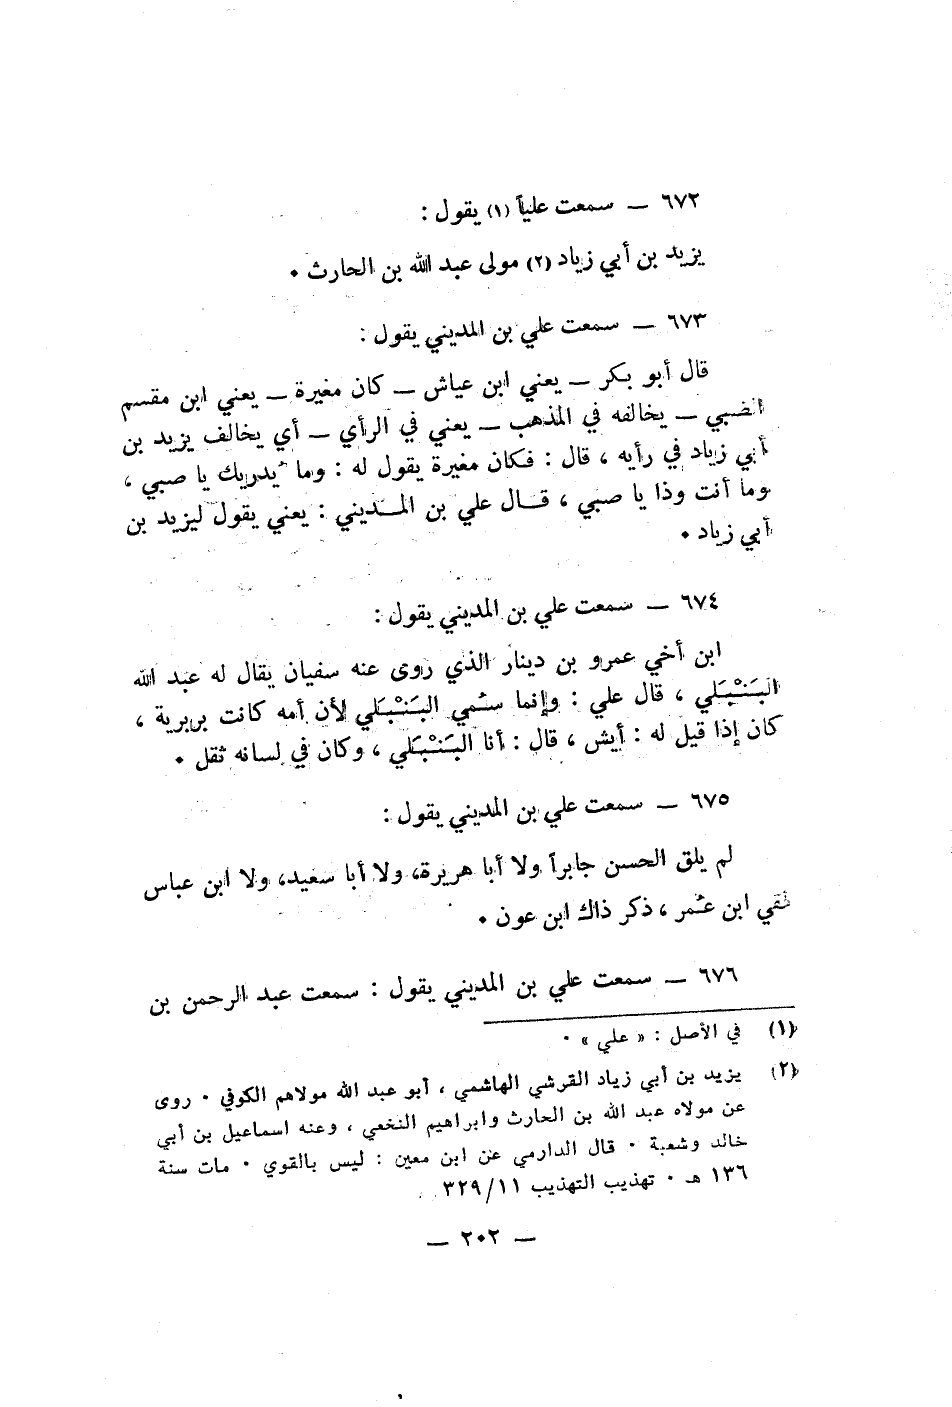 ٦٧٢ — سمعت علياً (١) يقول :
يزيد بن أبي زياد (٢) مولى عبد الله بن الحارث .
٦٧٣ — سمعت علي بن المديني يقول :
قال أبو بكر — يعني ابن عياش — كان مغيرة — يعني ابن مقسم
الضبي — يخالفه في المذهب — يعني في الرأي — أي يخالف يزيد بن
أبي زياد في رأيه ، قال : فكان مغيرة يقول له : وما يدريك يا صبي ،
وما أنت وذا يا صبي ، قال علي بن المديني : يعني يقول ليزيد بن
أبي زياد .
٦٧٤ — سمعت علي بن المديني يقول :
ابن أخي عمرو بن دينار الذي روى عنه سفيان يقال له عبد الله
البَنْبَلي ، قال علي : وإنما سُمي البَنْبَلي لأن أمه كانت بربرية ،
كان إذا قيل له : أيش ، قال : أنا البَنْبَلي ، وكان في لسانه ثقل .
٦٧٥ — سمعت علي بن المديني يقول :
لم يلق الحسن جابراً ولا أبا هريرة، ولا أبا سعيد، ولا ابن عباس
لقي ابن عُمر ، ذكر ذاك ابن عون .
٦٧٦ — سمعت علي بن المديني يقول : سمعت عبد الرحمن بن
(١) في الأصل : « علي » .
(٢) يزيد بن أبي زياد القرشي الهاشمي ، أبو عبد الله مولاهم الكوفي . روى
عن مولاه عبد الله بن الحارث وابراهيم النخعي ، وعنه اسماعيل بن أبي
خالد وشعبة . قال الدارمي عن ابن معين : ليس بالقوي . مات سنة
١٣٦ هـ . تهذيب التهذيب ٣٢٩/١١ .
— ٢٠٢ —